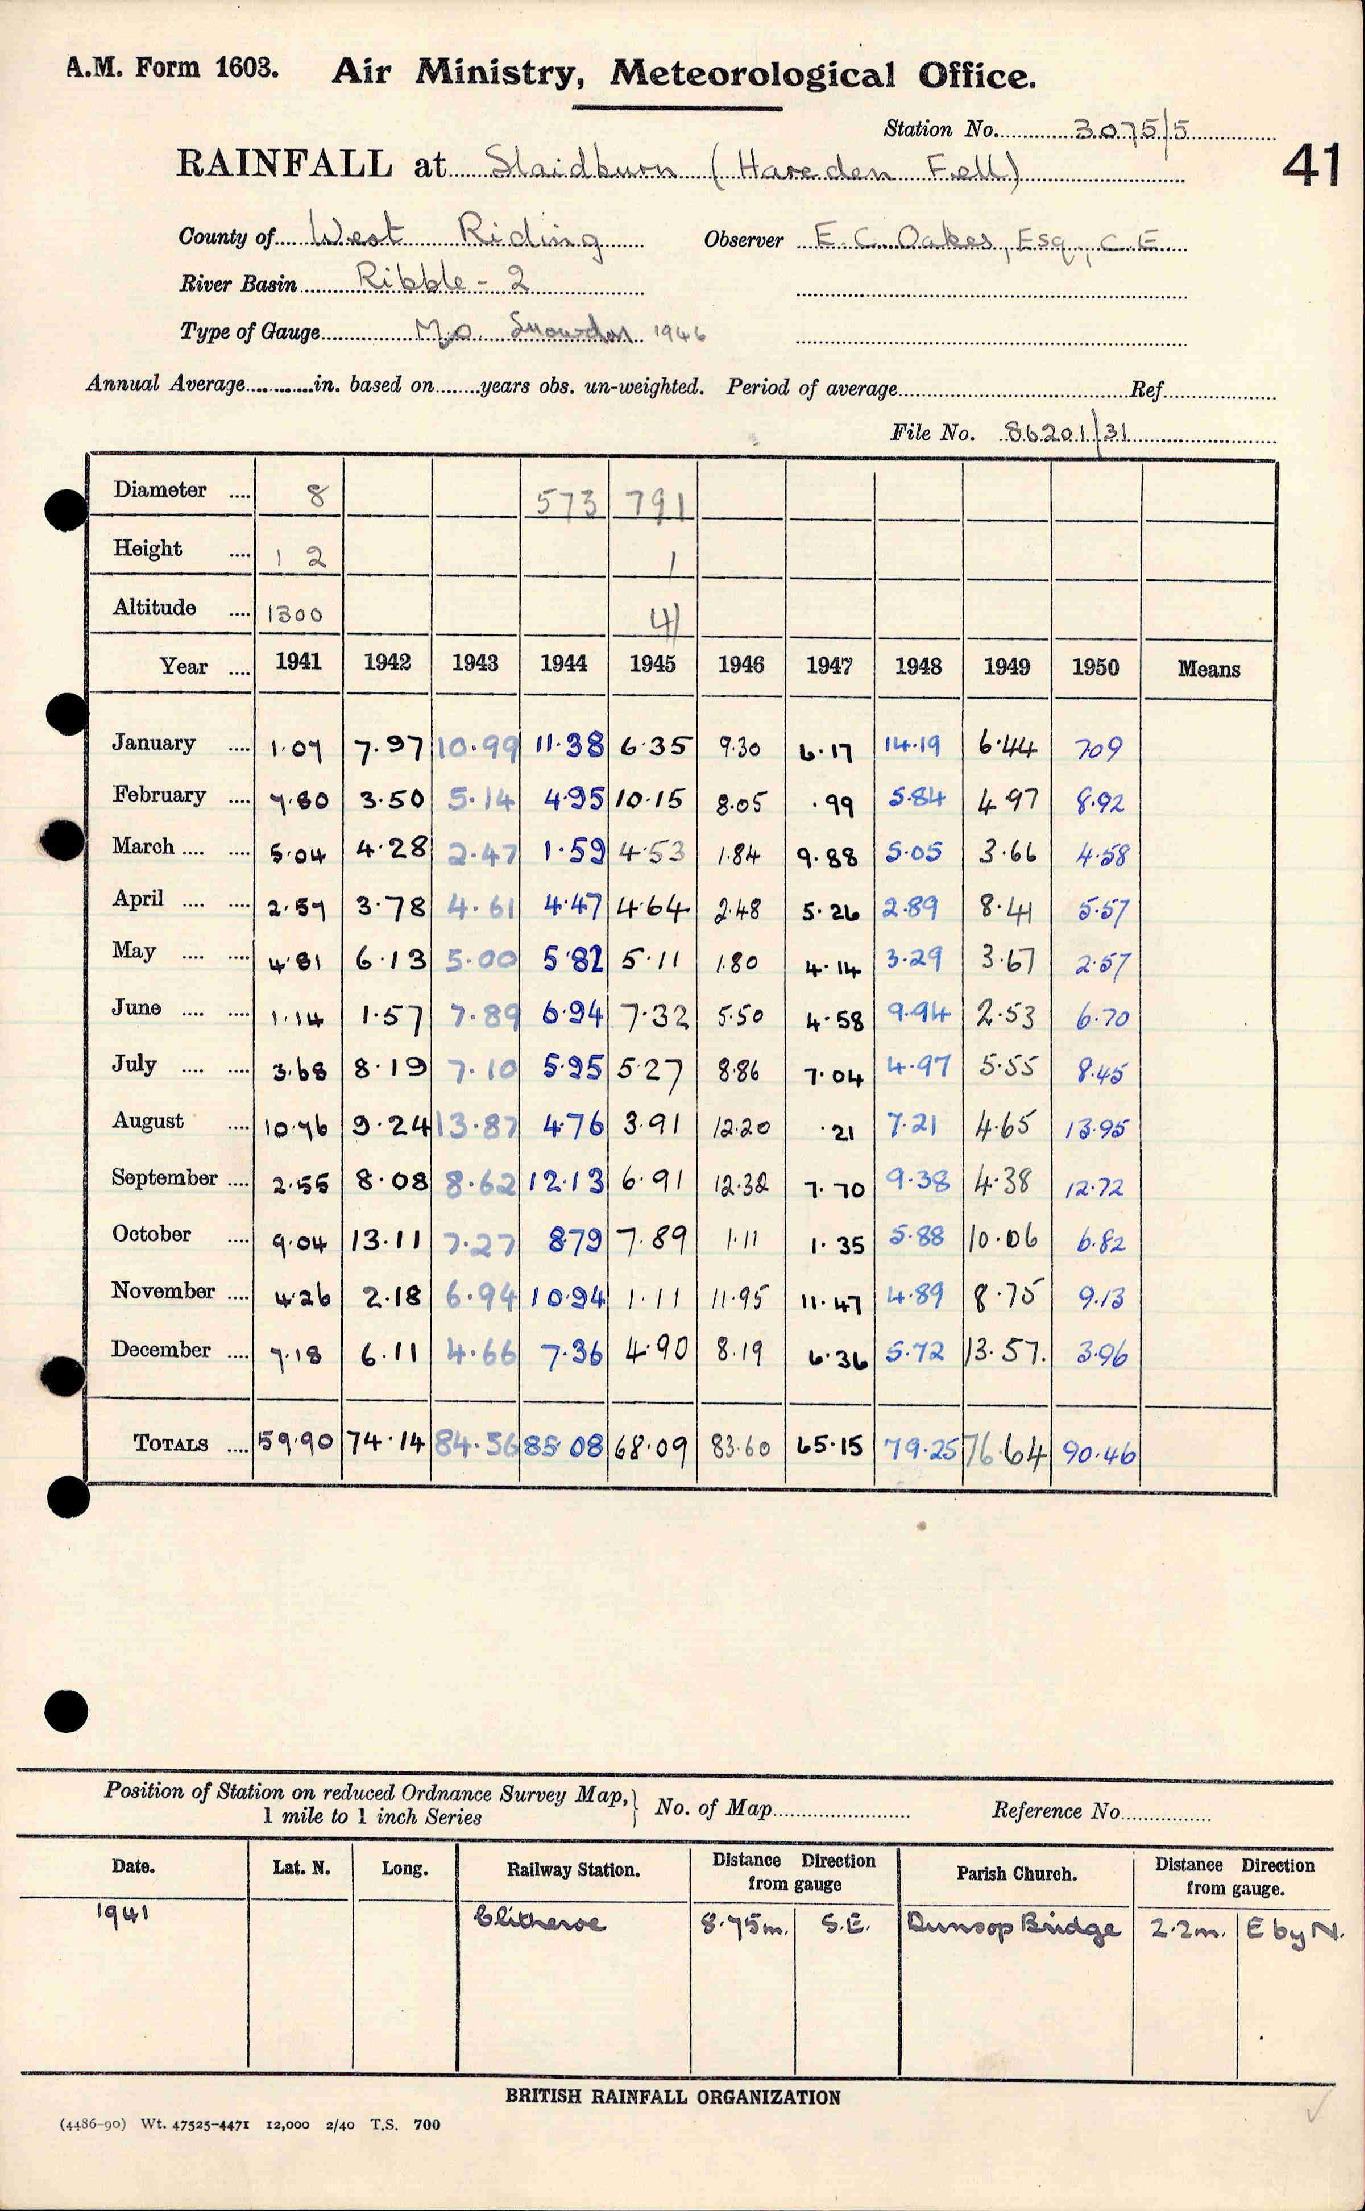 A.M. Form 1603. Air Ministry, Meteorological Office.
Station No. 3075/5
41
RAINFALL at Slaidburn (Hareden Fell)
County of West Riding Observer E. C. Oakes, Esq., C.E.
River Basin Ribble - 2
Type of Gauge M.O. Snowdon 1946
Annual Average in. based on years obs. un-weighted. Period of average Ref.
File No. 86201/31
Diameter .... 8 573 791
Height .... 1 2 1
Altitude .... 1300 41
Year .... 1941 1942 1943 1944 1945 1946 1947 1948 1949 1950 Means
January .... 1.07 7.97 10.99 11.38 6.35 9.30 6.17 14.19 6.44 7.09
February .... 7.80 3.50 5.14 4.95 10.15 8.05 .99 5.84 4.97 8.92
March .... .... 5.04 4.28 2.47 1.59 4.53 1.84 9.88 5.05 3.66 4.58
April .... .... 2.57 3.78 4.61 4.47 4.64 2.48 5.26 2.89 8.41 5.57
May .... .... 4.81 6.13 5.00 5.82 5.11 1.80 4.14 3.29 3.67 2.57
June .... .... 1.14 1.57 7.89 6.94 7.32 5.50 4.58 9.94 2.53 6.70
July .... .... 3.68 8.19 7.10 5.95 5.27 8.86 7.04 4.97 5.55 8.45
August .... 10.76 9.24 13.87 4.76 3.91 12.20 .21 7.21 4.65 13.95
September .... 2.55 8.08 8.62 12.13 6.91 12.32 7.70 9.38 4.38 12.72
October .... 9.04 13.11 7.27 879 7.89 1.11 1.35 5.88 10.06 6.82
November .... 4.26 2.18 6.94 10.94 1.11 11.95 11.47 4.89 8.75 9.13
December .... 7.18 6.11 4.66 7.36 4.90 8.19 6.36 5.72 13.57. 3.96
TOTALS .... 59.90 74.14 84.56 85.08 68.09 83.60 65.15 79.25 76.64 90.46
Position of Station on reduced Ordnance Survey Map, 1 mile to 1 inch Series No. of Map Reference No.
Date. Lat. N. Long. Railway Station. Distance Direction from gauge Parish Church. Distance Direction from gauge.
1941 Clitheroe 8.75m. S.E. Dunsop Bridge 2.2m. E by N.
BRITISH RAINFALL ORGANIZATION
(4486-90) Wt. 47525-4471 12,000 2/40 T.S. 700